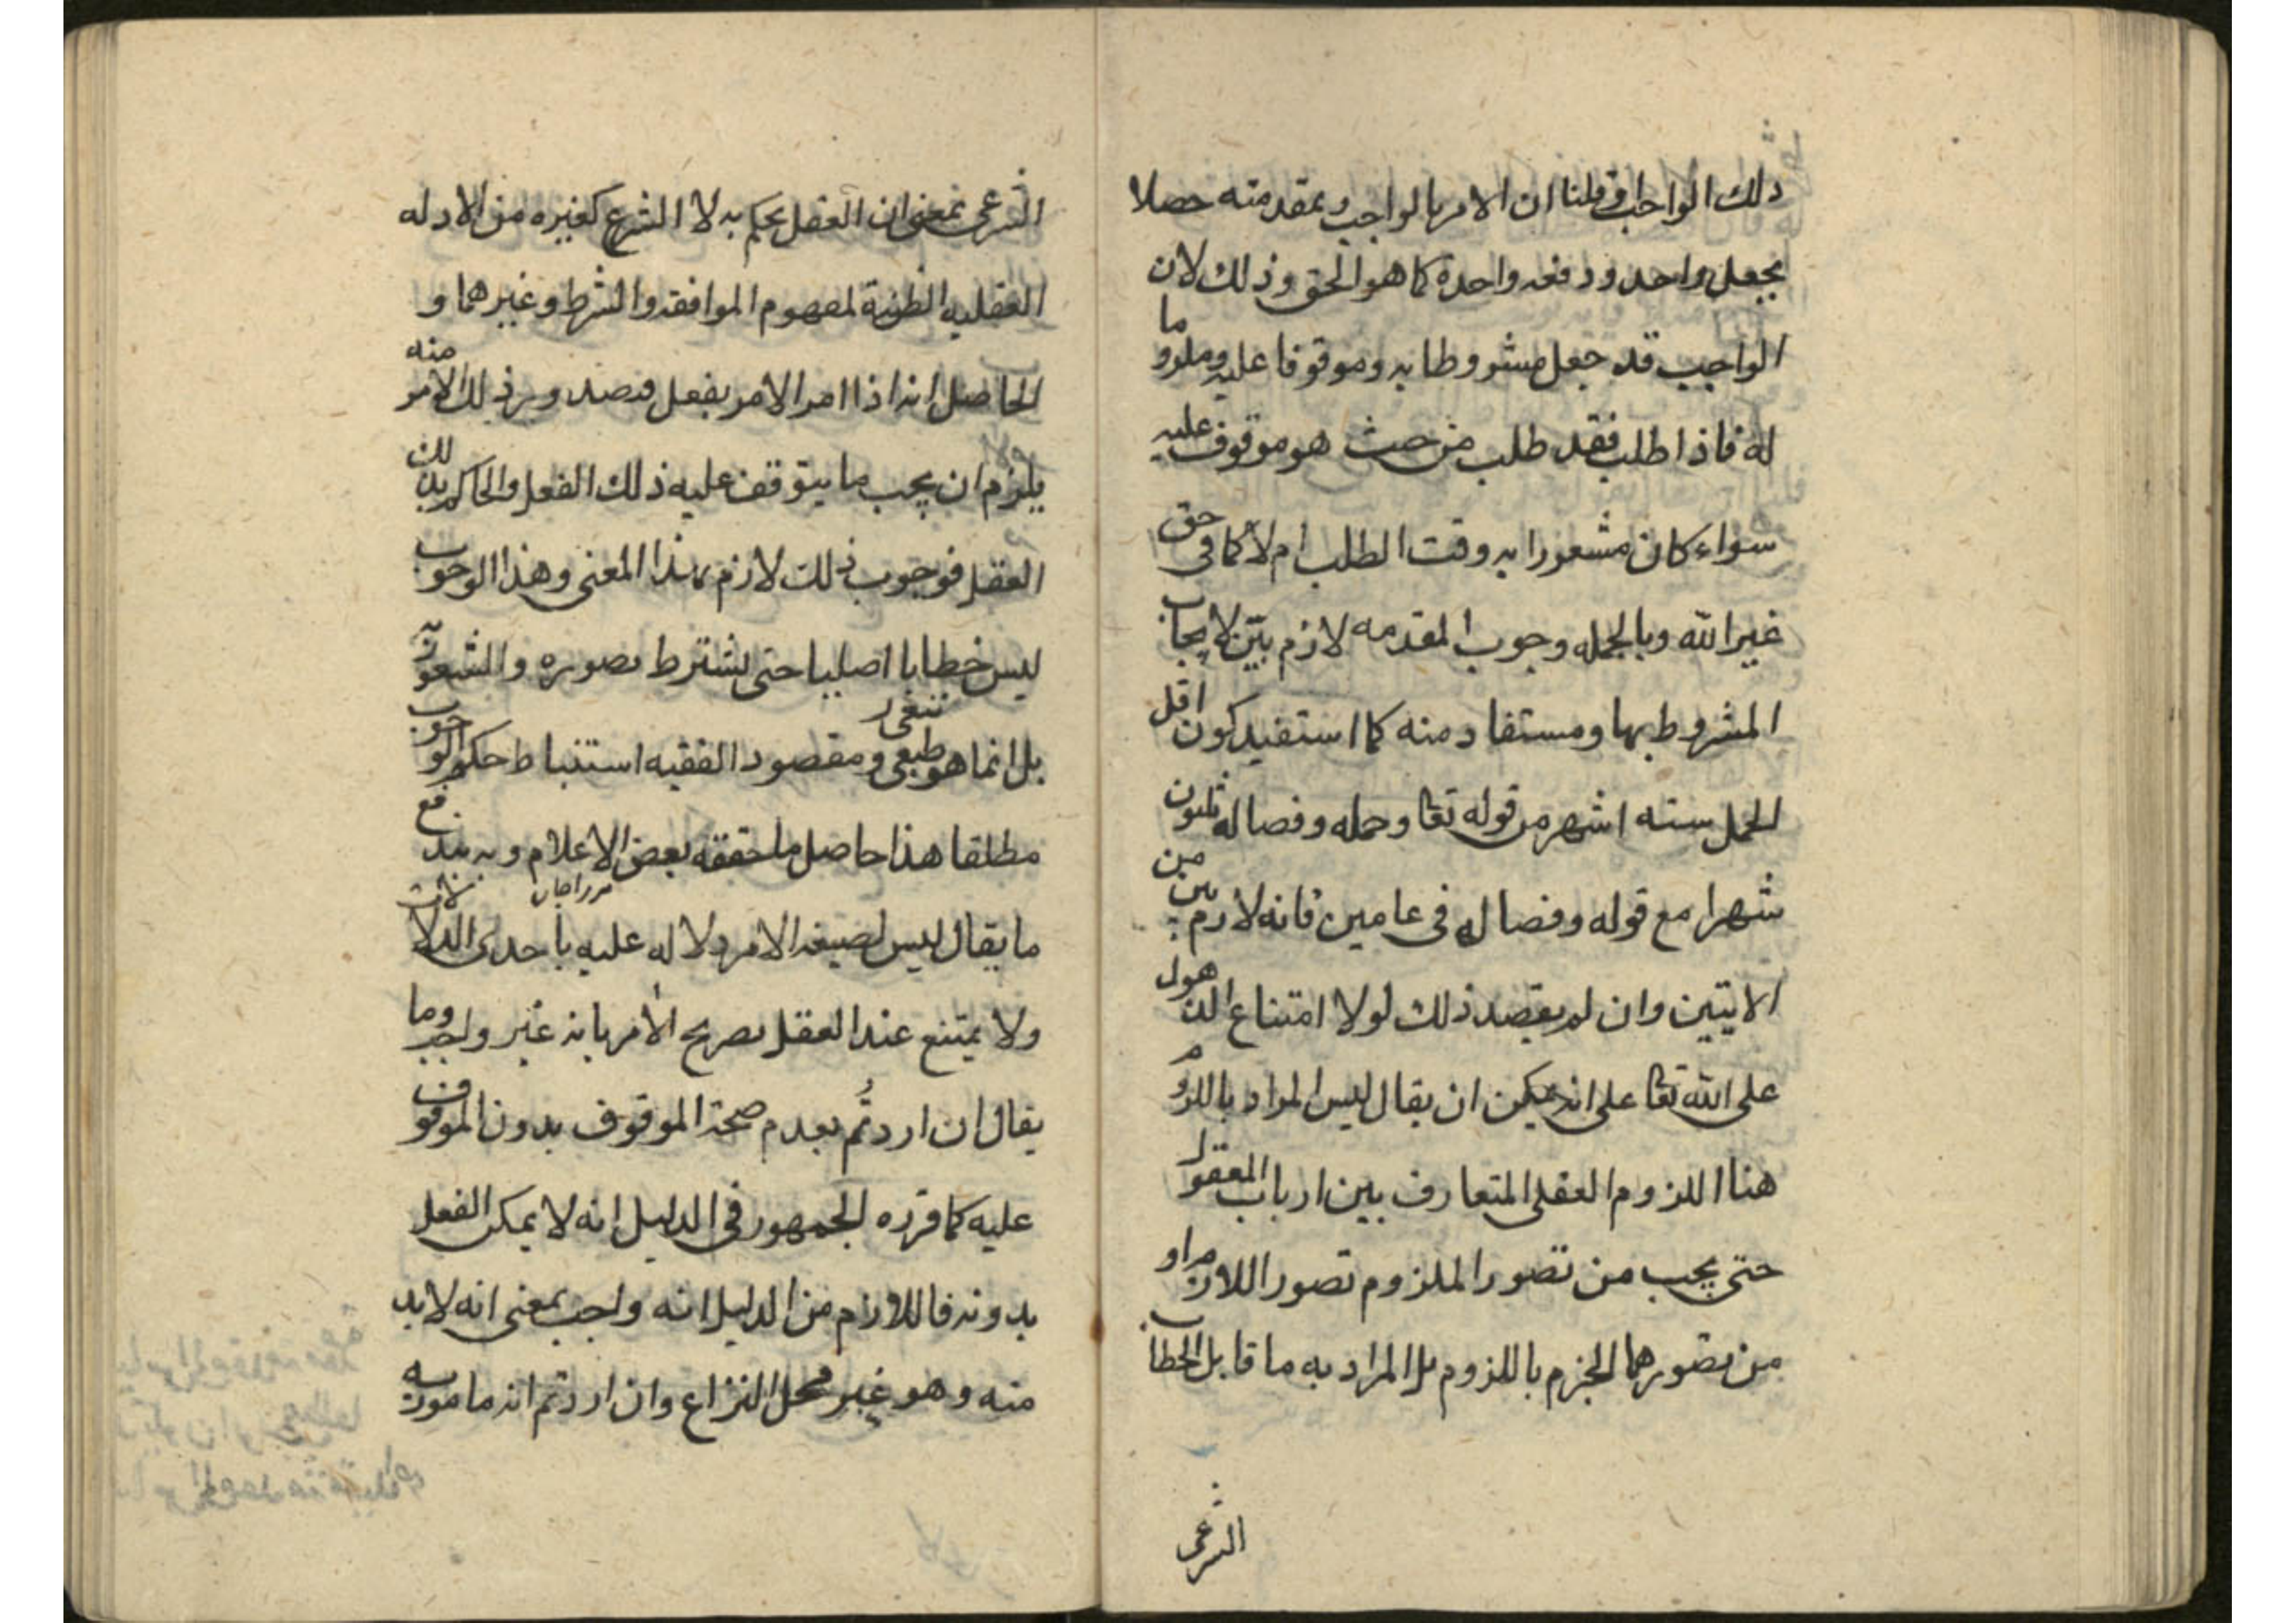 ذلك الواجب وقلنا ان الامر بالواجب وبمقدمته حصلا
بجعل واحد ودفعه واحدة كما هو الحق وذلك لان
الواجب قد جعل مشروطا به وموقوفا عليه وملزوما
له فاذا طلب فقد طلب من حيث هو موقوف عليه
سواء كان مشعورا به وقت الطلب ام لا كما في حق
غير الله وبالجمله وجوب المقدمه لازم بين لايجاب
المشروط بها ومستفاد منه كما استفيد كون اقل
الحمل سته اشهر من قوله تعا وحمله وفصاله ثلثون
شهرا مع قوله وفصاله في عامين فانه لازم بين من
الايتين وان لم يقصد ذلك لولا امتناع الذهول
على الله تعا على انه يمكن ان يقال ليس المراد باللزوم
هنا اللزوم العقلي المتعارف بين ارباب المعقول
حتى يجب من تصور الملزوم تصور اللازم او
من تصورهما الجزم باللزوم بل المراد به ما قابل الخطاب
الشرعى
الشرعى بمعنى ان العقل يحكم به لا الشرع كغيره من الادله
العقليه الظنية لمفهوم الموافقه والشرط وغيرهما و
الحاصل انه اذا امر الامر بفعل فصدور ذلك الامر منه
يلزم ان يجب ما يتوقف عليه ذلك الفعل والحاكم بذلك
العقل فوجوب ذلك لازم بهذا المعنى وهذا الوجوب
ليس خطابا اصليا حتى يشترط تصوره والشعور به
بل انما هو طبعى تبعى ومقصود الفقيه استنباط حكم الوجوب
مطلقا هذا حاصل ما حققه بعض الاعلام وبه يندفع
مرزاجان
ما يقال ليس لصيغه الامر دلاله عليه باحدى الدلالات
ولا يمتنع عند العقل تصريح الامر بانه غير واجب وما
يقال ان اردتم بعدم صحة الموقوف بدون الموقوف
عليه كما قرره الجمهور في الدليل انه لا يمكن الفعل
بدونه فاللازم من الدليل انه واجب بمعنى انه لا بد
منه وهو غير محل النزاع وان اردتم انه مامور به